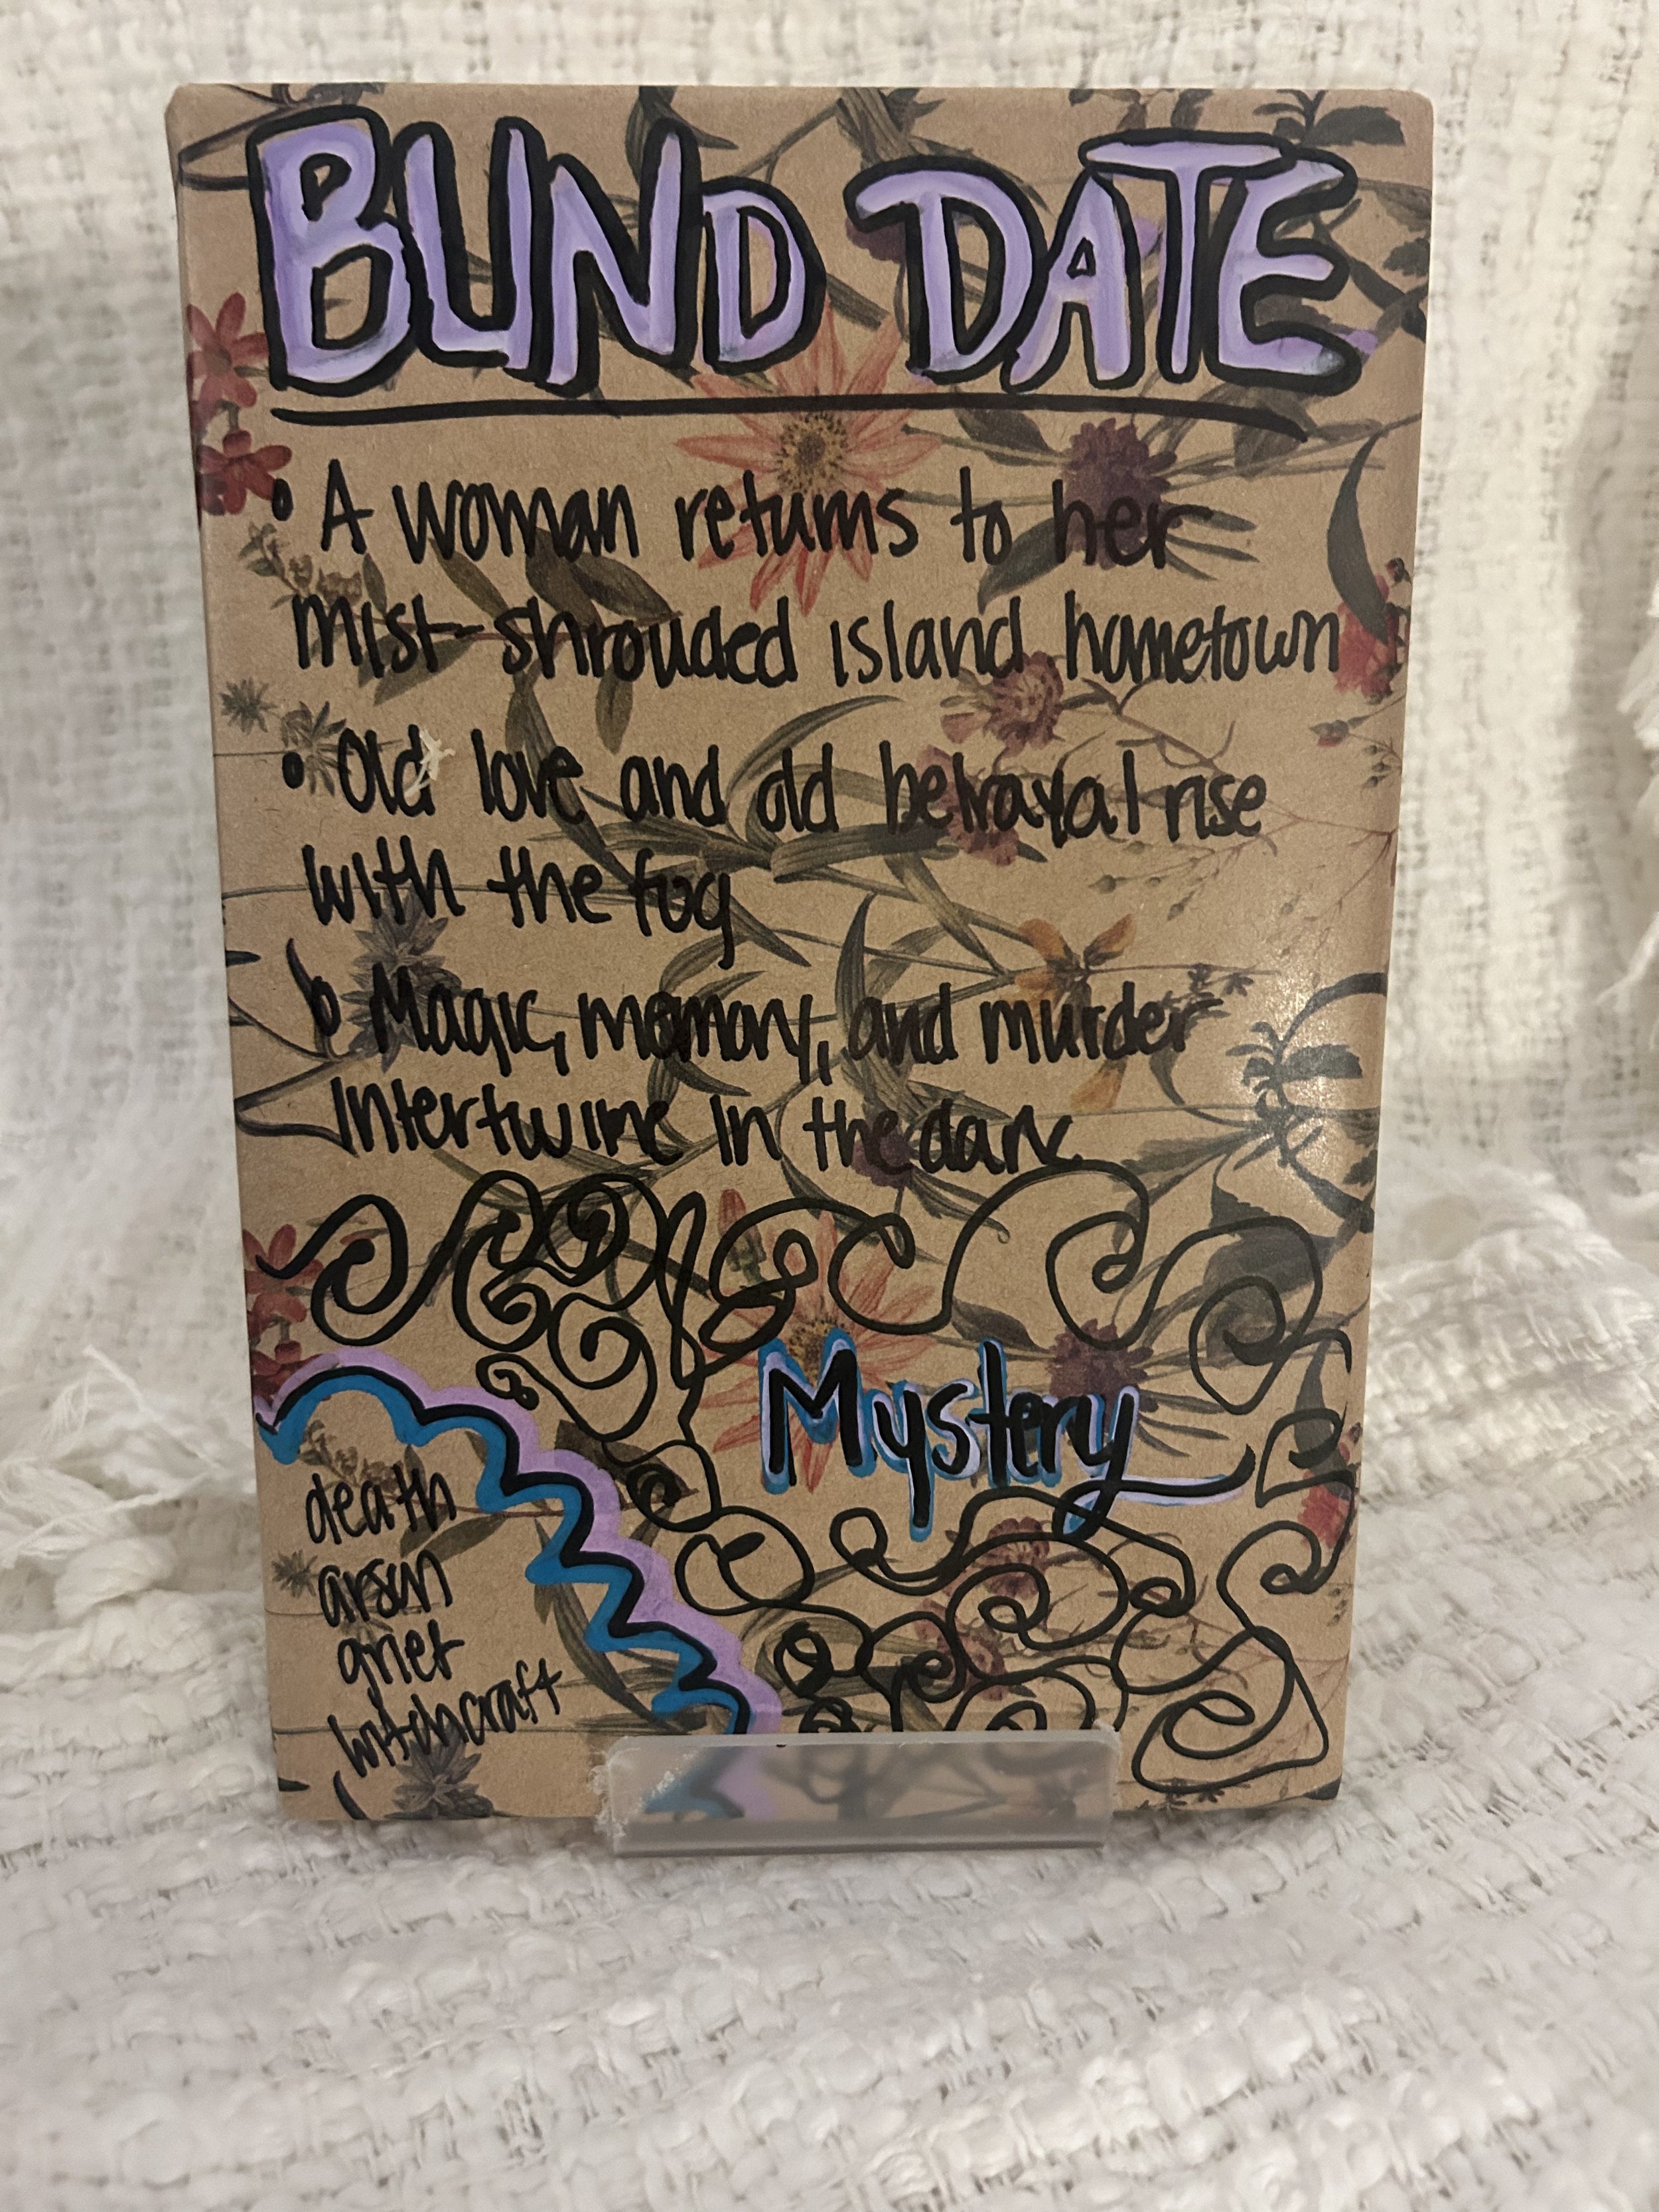 BLIND DATE
• A woman returns to her
mist-shrouded island hometown
• Old love and old betrayal rise
with the fog
• Magic, memory, and murder
intertwine in the dark
Mystery
death
arson
grief
witchcraft